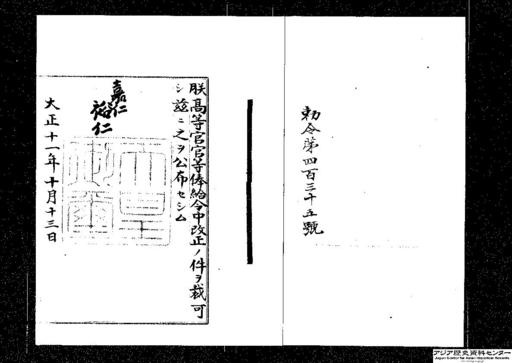 勅令第四百三十五號
朕高等官官等俸給令中改正ノ件ヲ裁可
シ茲ニ之ヲ公布セシム
嘉仁
裕仁
大正十一年十月十三日
アジア歴史資料センター
Japan Center for Asian Historical Records